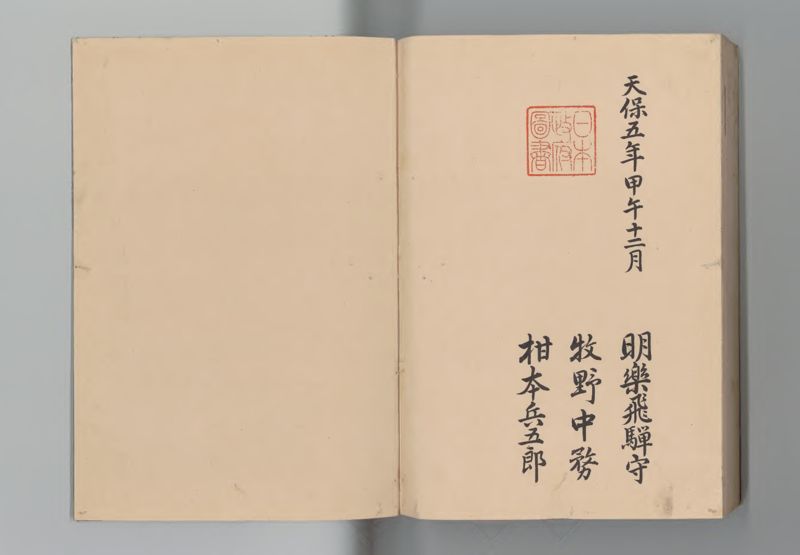 天保五年甲午十二月
明樂飛驒守
牧野中務
柑本兵五郎
日本
政府
圖書